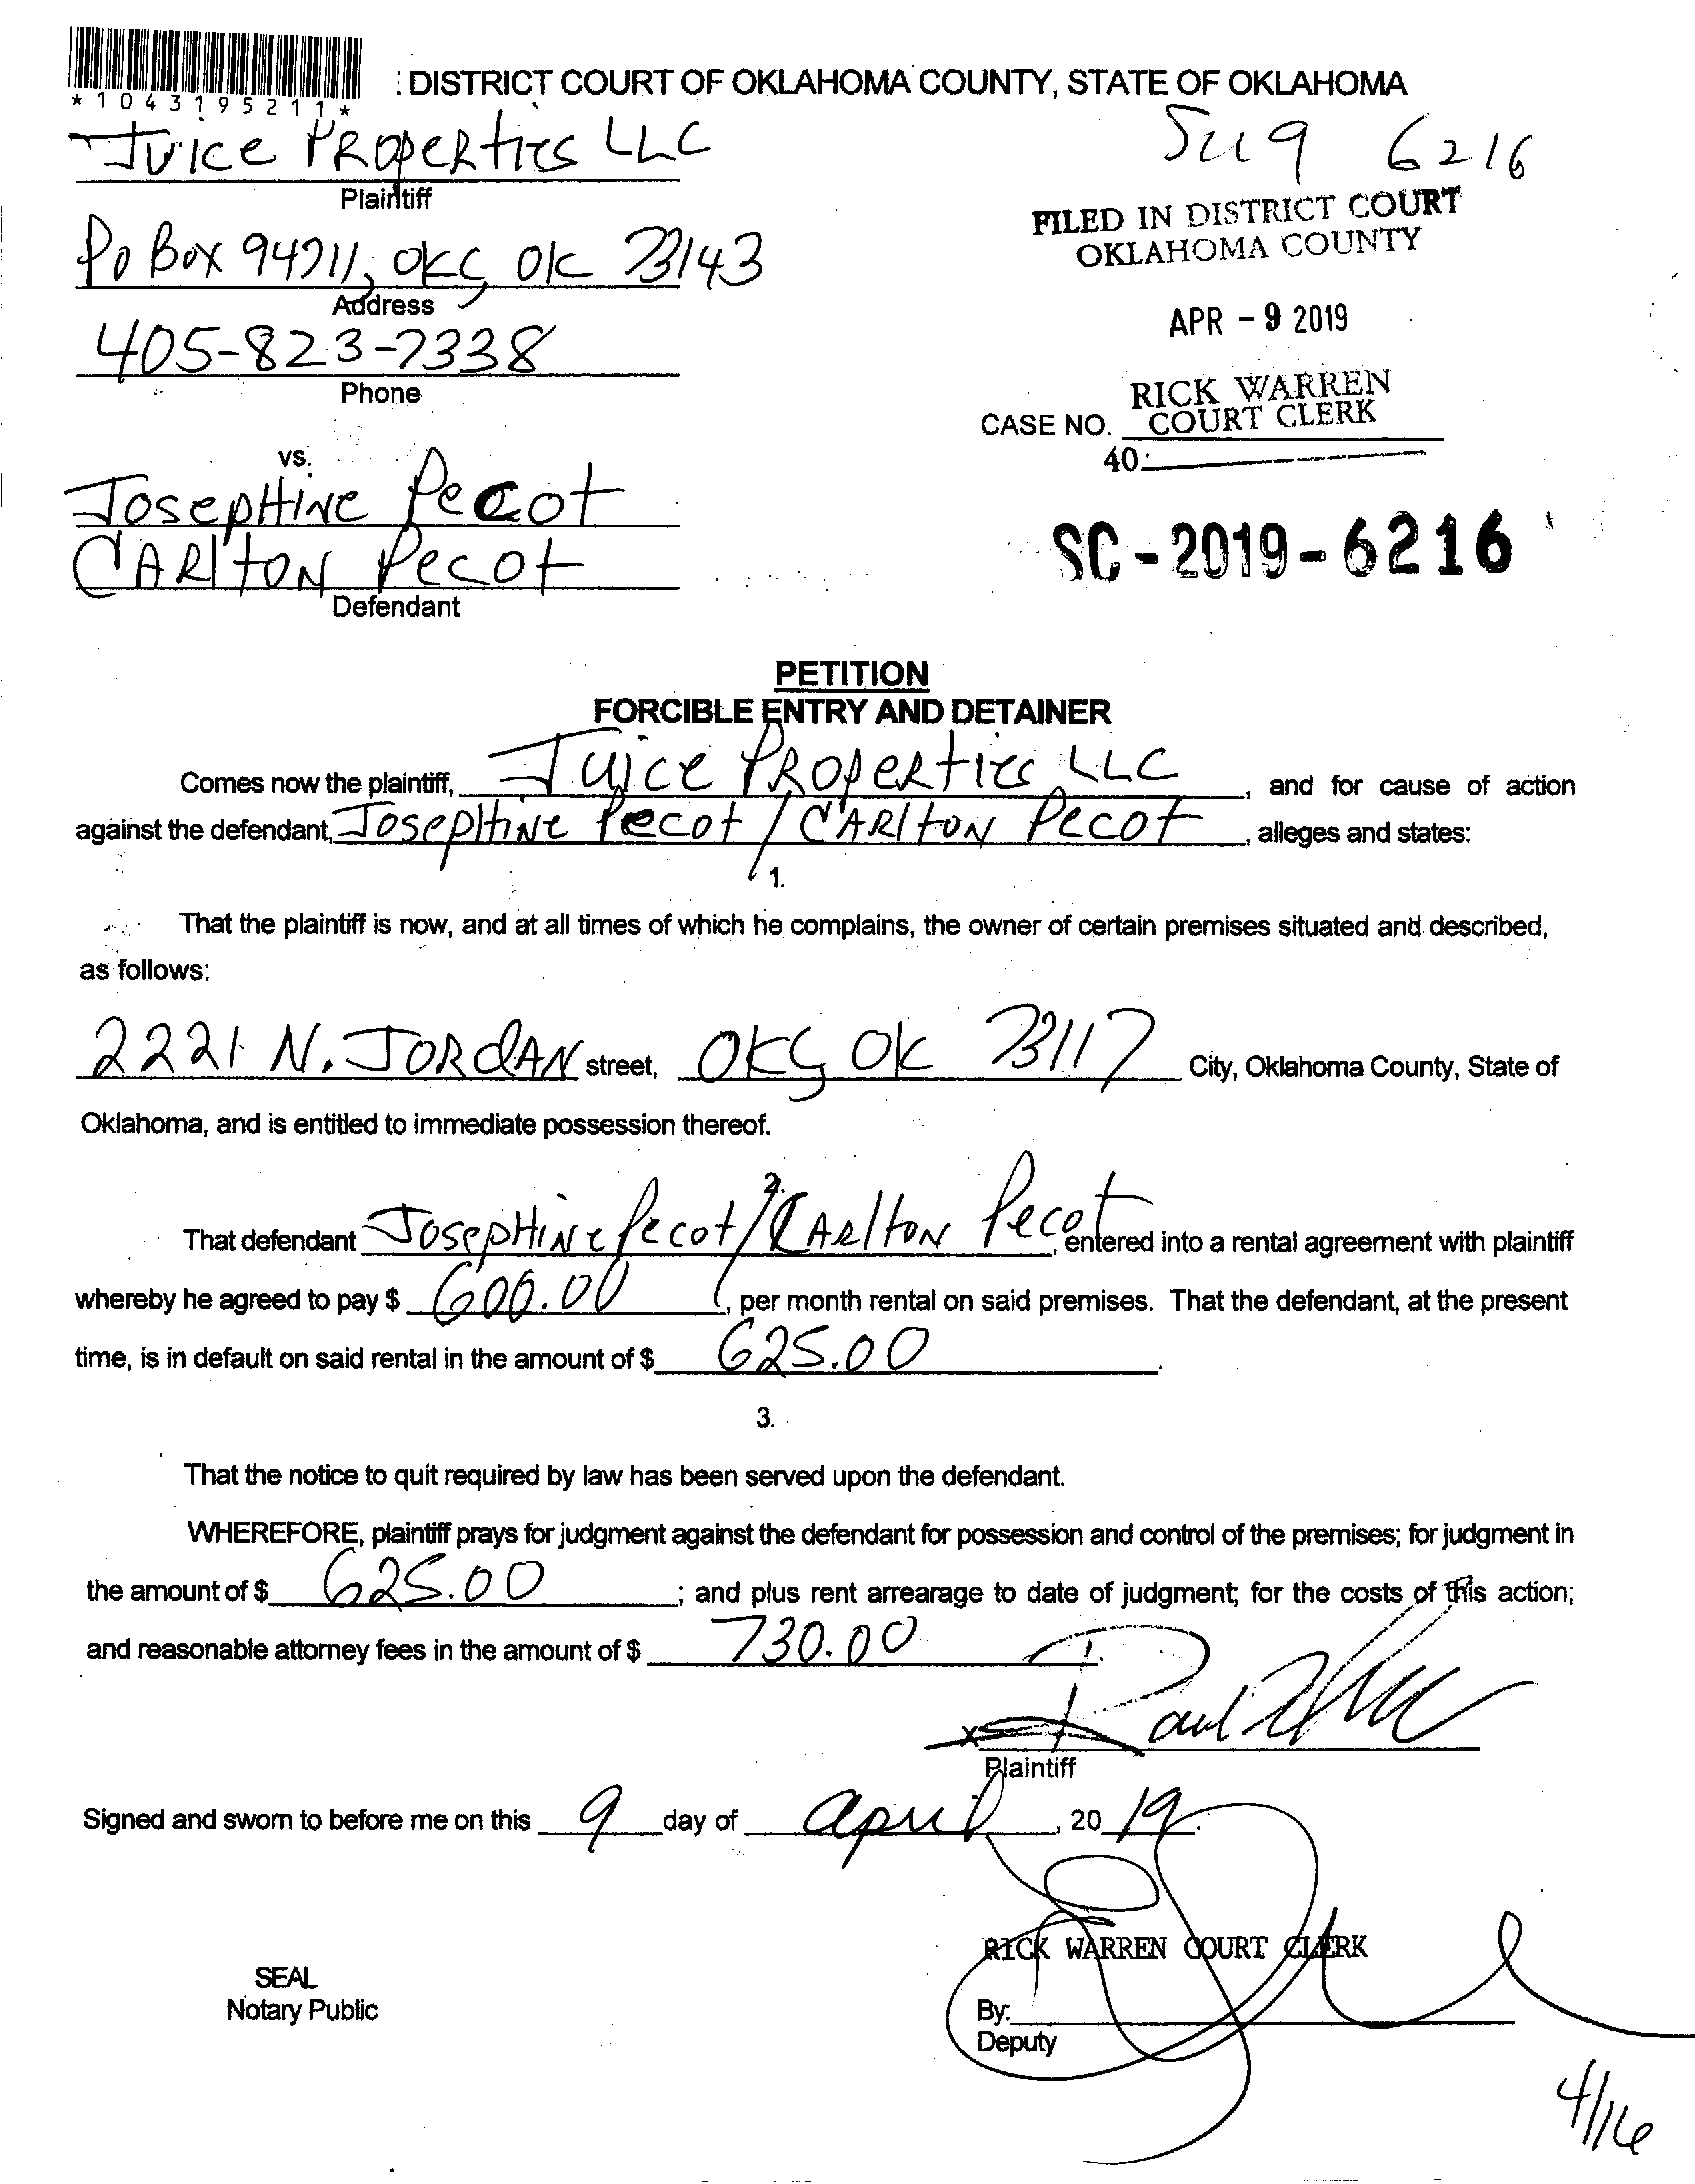 *1043195211*
: DISTRICT COURT OF OKLAHOMA COUNTY, STATE OF OKLAHOMA
Juice Properties LLC
Plaintiff
6216
PO Box 94711, OKC, OK 73143
Address
FILED IN DISTRICT COURT
OKLAHOMA COUNTY
405-823-7338
Phone
APR - 9 2019
RICK WARREN
COURT CLERK
CASE NO.
40
vs.
Josephine Pecot
Carlton Pecot
Defendant
SC-2019-6216
PETITION
FORCIBLE ENTRY AND DETAINER
Comes now the plaintiff, Juice Properties LLC, and for cause of action
against the defendant, Josephine Pecot / Carlton Pecot, alleges and states:
1.
That the plaintiff is now, and at all times of which he complains, the owner of certain premises situated and described,
as follows:
2221 N. Jordan street, OKC OK 73117 City, Oklahoma County, State of
Oklahoma, and is entitled to immediate possession thereof.
2.
That defendant Josephine Pecot / Carlton Pecot, entered into a rental agreement with plaintiff
whereby he agreed to pay $ 600.00, per month rental on said premises. That the defendant, at the present
time, is in default on said rental in the amount of $ 625.00.
3.
That the notice to quit required by law has been served upon the defendant.
WHEREFORE, plaintiff prays for judgment against the defendant for possession and control of the premises; for judgment in
the amount of $ 625.00; and plus rent arrearage to date of judgment; for the costs of this action;
and reasonable attorney fees in the amount of $ 730.00.
X Paul
Plaintiff
Signed and sworn to before me on this 9 day of April, 2019.
RICK WARREN COURT CLERK
SEAL
Notary Public
By:
Deputy
4/16